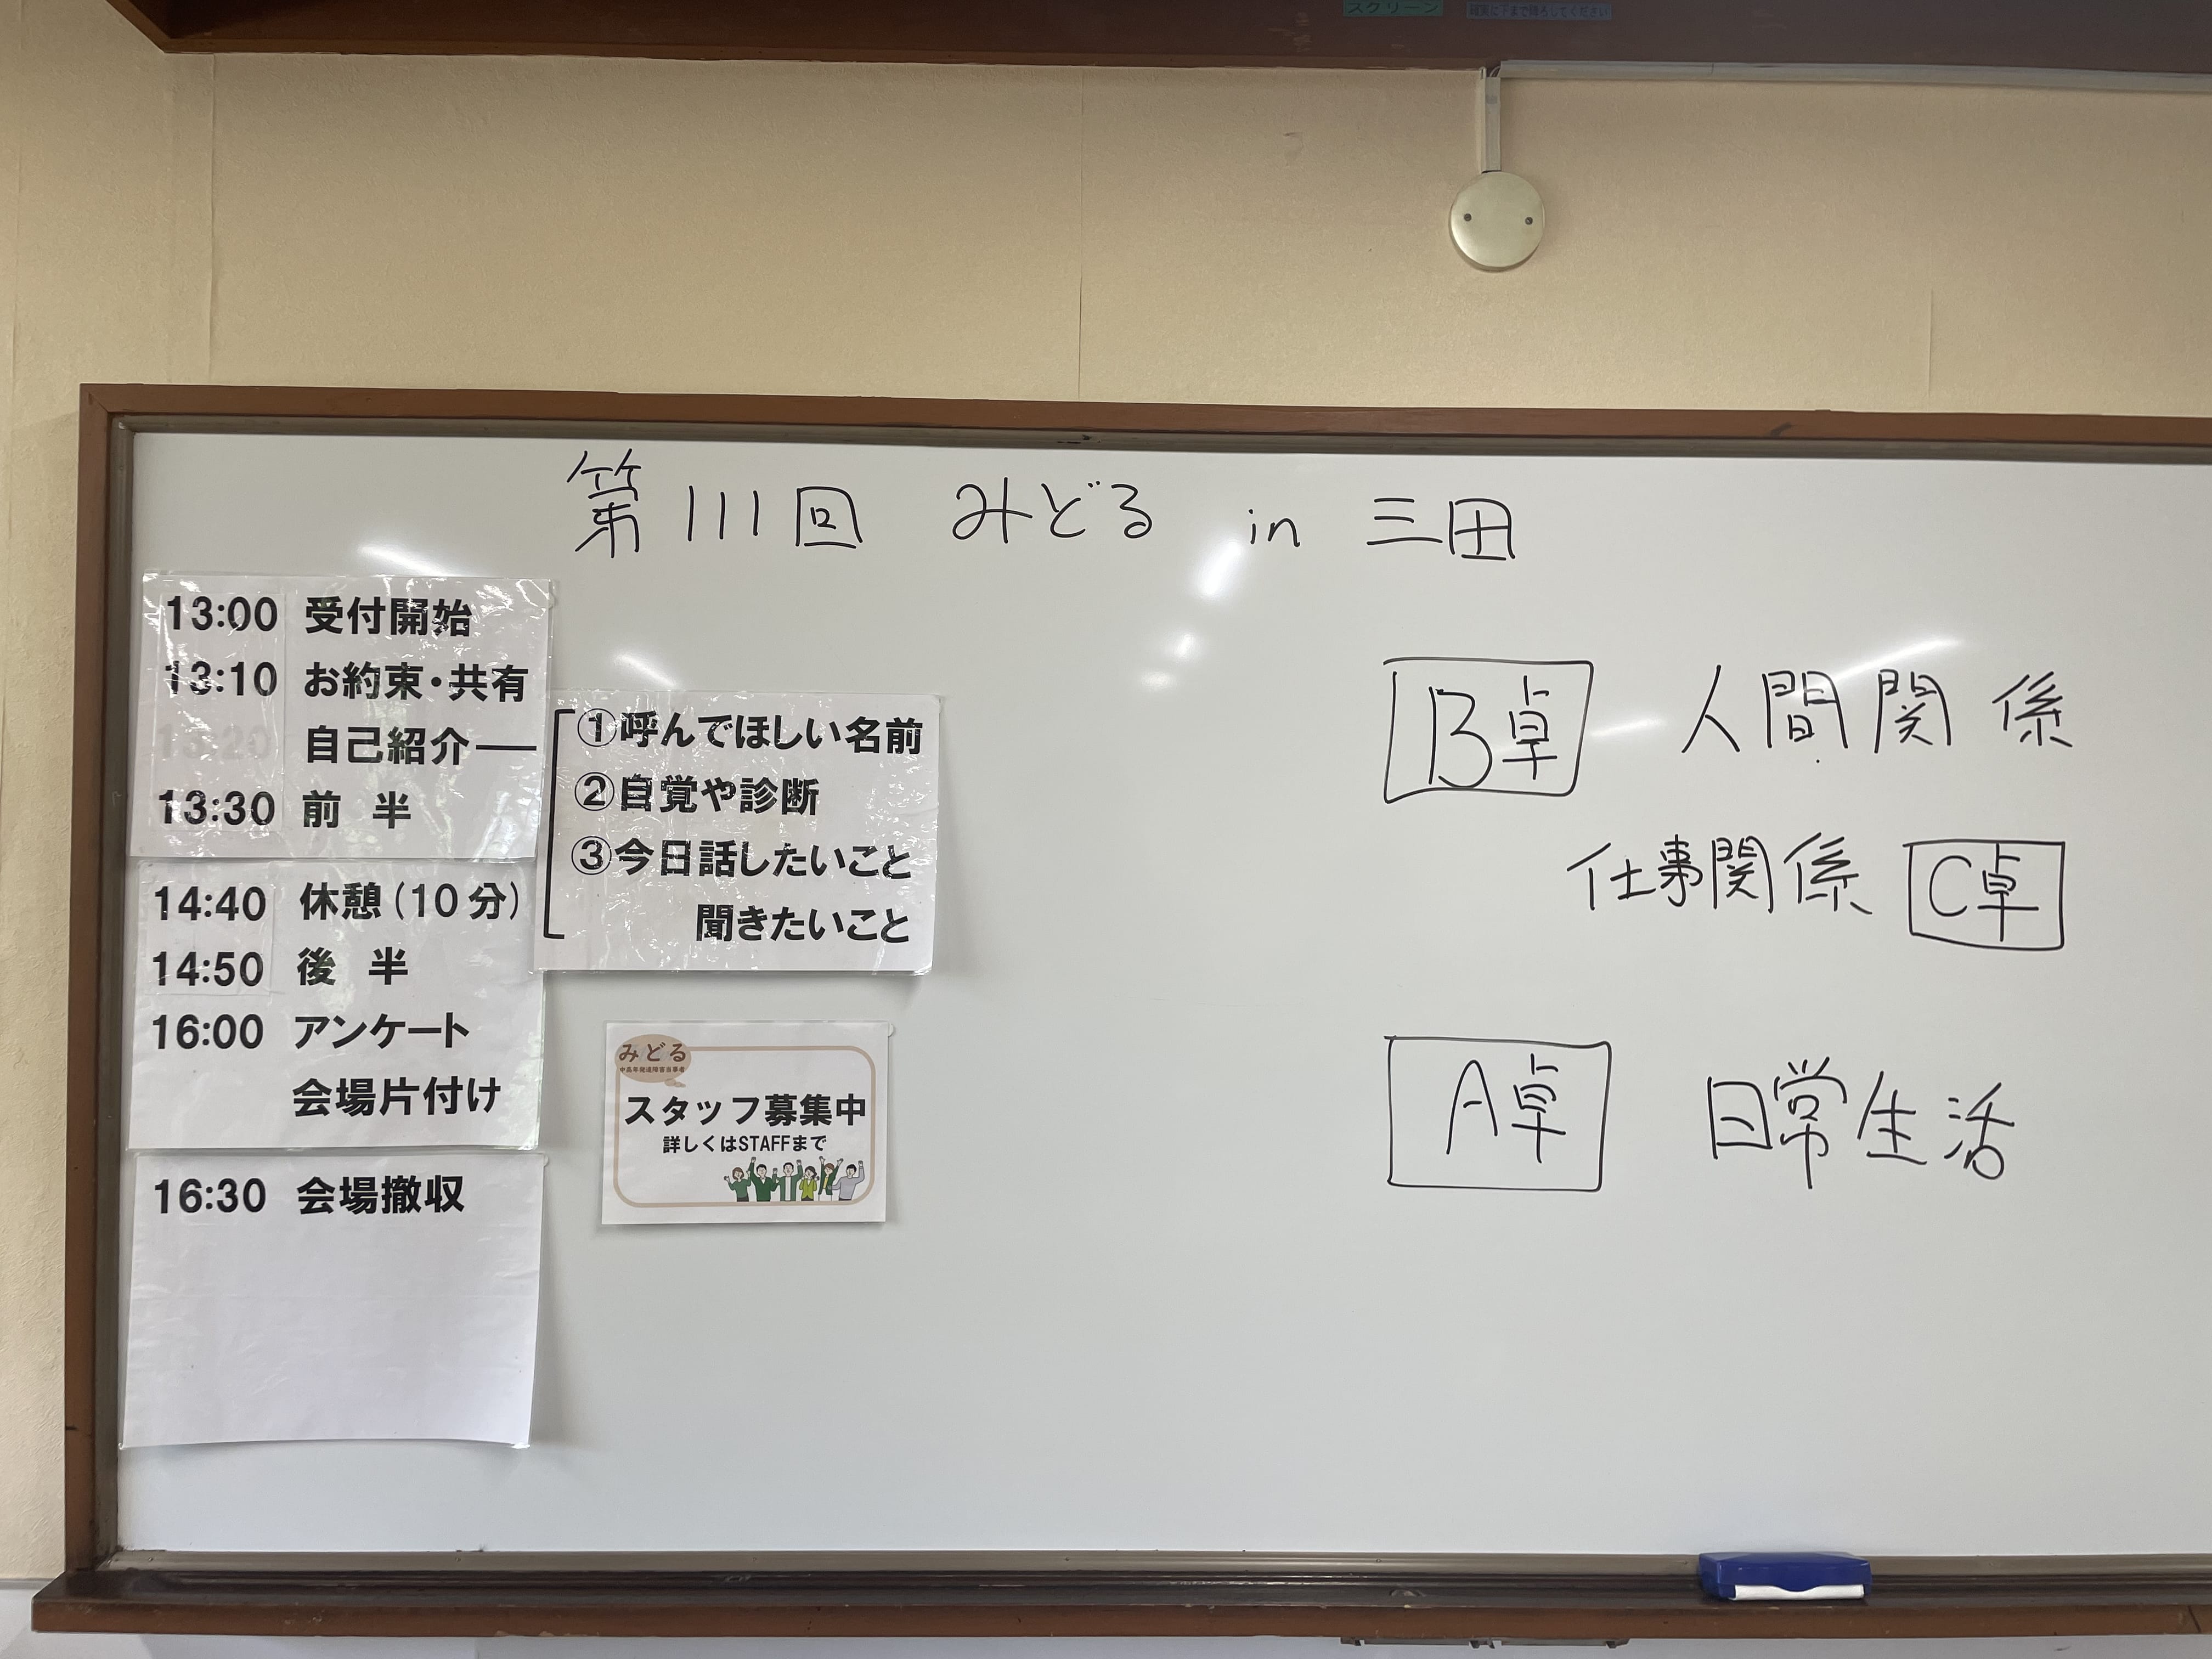 スクリーン
確実に下まで降ろしてください
第111回 みどる in 三田
13:00 受付開始
13:10 お約束・共有
13:20 自己紹介
13:30 前 半
①呼んでほしい名前
②自覚や診断
③今日話したいこと
聞きたいこと
14:40 休憩(10分)
14:50 後 半
16:00 アンケート
会場片付け
16:30 会場撤収
みどる
中高年発達障害当事者
スタッフ募集中
詳しくはSTAFFまで
B卓 人間関係
仕事関係 C卓
A卓 日常生活